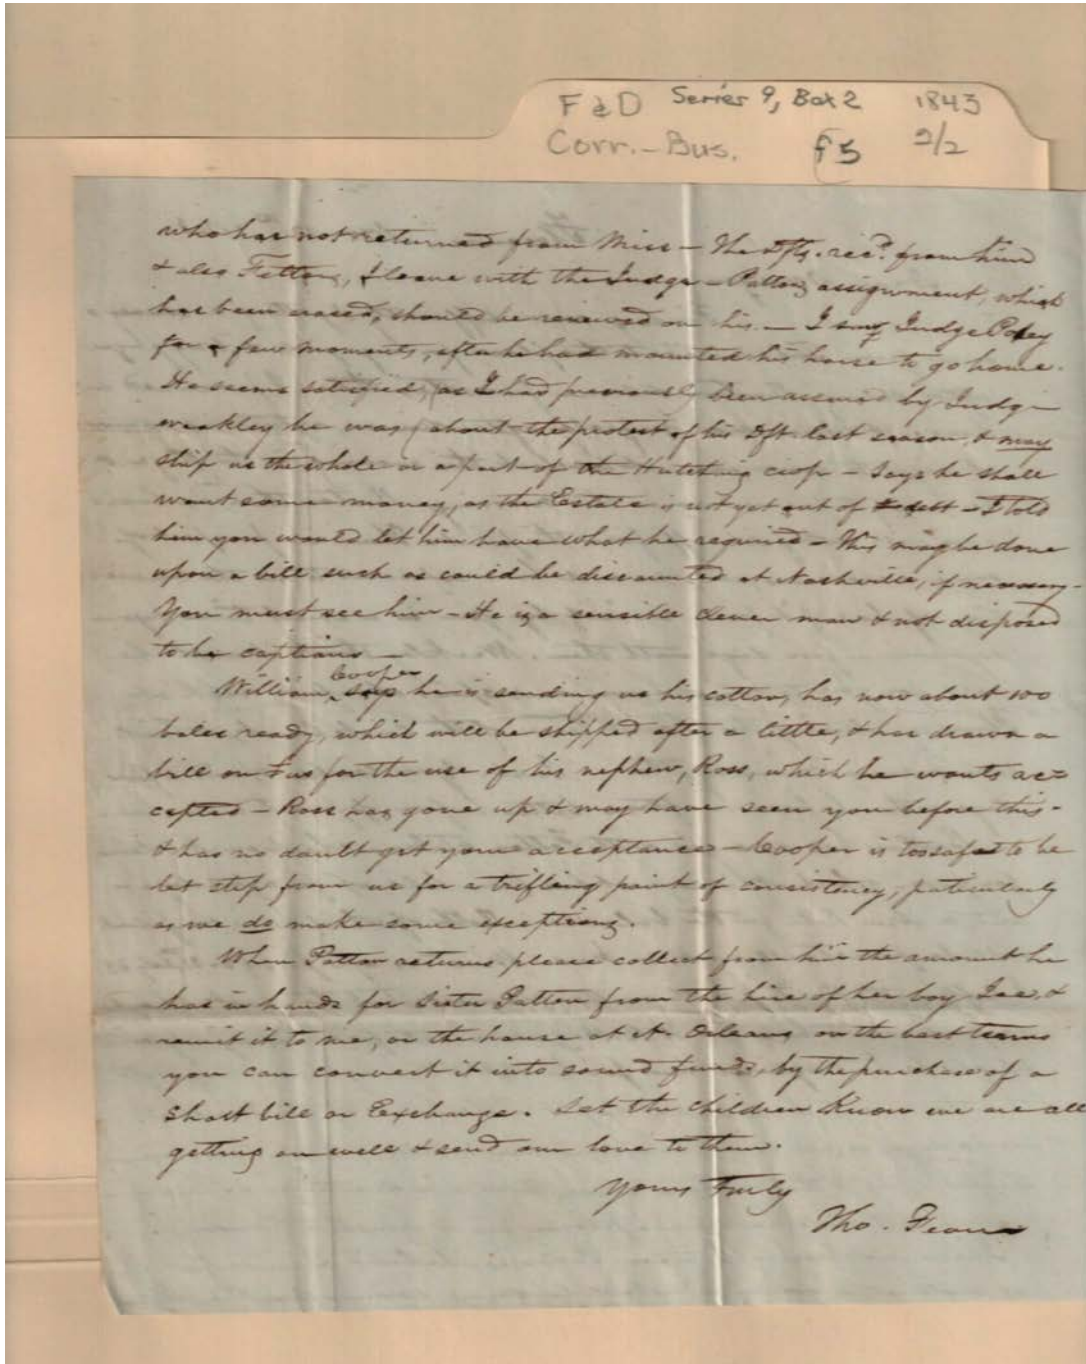 F & D Series 9, Box 2 1843
Corr.-Bus. f5 2/2
who has not returned from Miss — The Dfts. recd. from him
& also Fetton, I leave with the Judge — Pattons assignment, which
has been erased, should be renewed on his. — I saw Judge
for a few moments, after he had mounted his horse to go home.
He seems satisfied, (as I had previously been assured by Judge
Weakley he was) about the protest of his Dft. last season, & may
ship us the whole or a part of the Hutchings crop — Says he shall
want some money, as the Estate is not yet out of debt — I told
him you would let him have what he required — This may be done
upon a bill such as could be discounted at Nashville, if necessary —
You must see him — He is a sensible clever man & not disposed
to be captious —
William Cooper says he is sending us his cotton, has now about 100
bales ready, which will be shipped after a little, & has drawn a
bill on us for the use of his nephew, Ross, which he wants ac=
cepted — Ross has gone up & may have seen you before this -
& has no dault got your acceptance — Cooper is too safe to be
let slip from us for a trifling point of consistency, paticularly
as we do make some exceptions.
When Patton returns please collect from him the amount he
has in hands for Sister Patton from the hire of her boy &
remit it to me, or the house at N. Orleans on the best terms
you can convert it into sound funds, by the purchase of a
short bill or Exchange. Let the children Know we are all
getting on well & send our love to them.
Yours Truly
Tho. Fearn